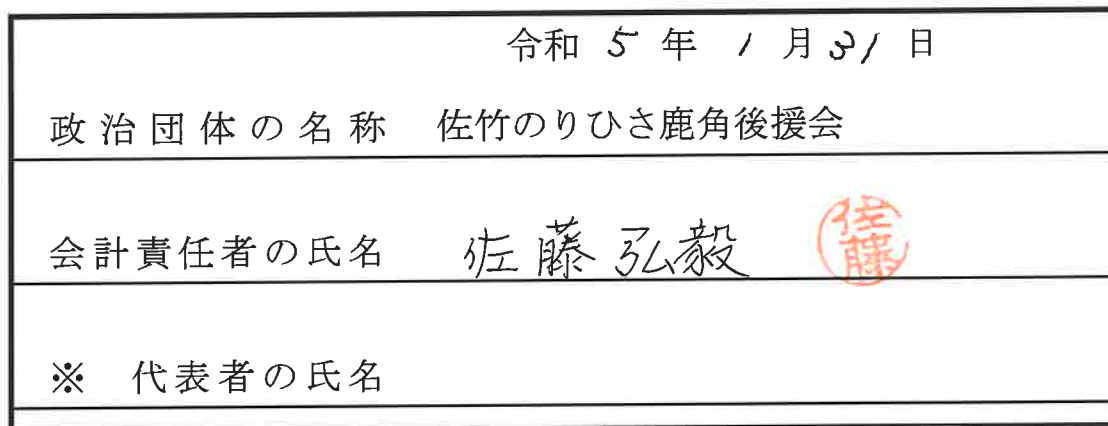 令和 5 年 1 月 31 日
政治団体の名称 佐竹のりひさ鹿角後援会
会計責任者の氏名 佐藤弘毅 佐藤
※ 代表者の氏名